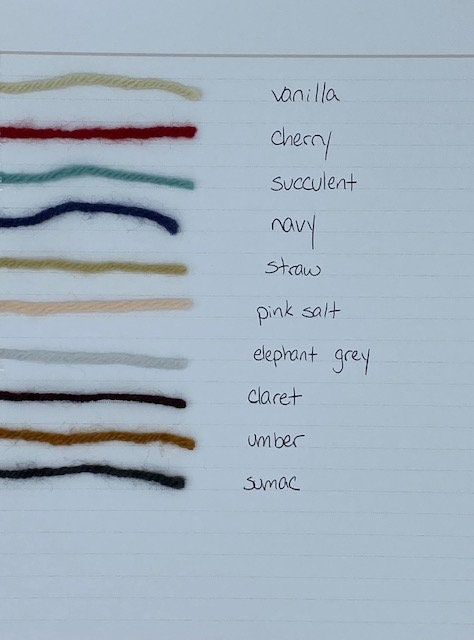 vanilla
cherry
succulent
navy
straw
pink salt
elephant grey
claret
umber
sumac